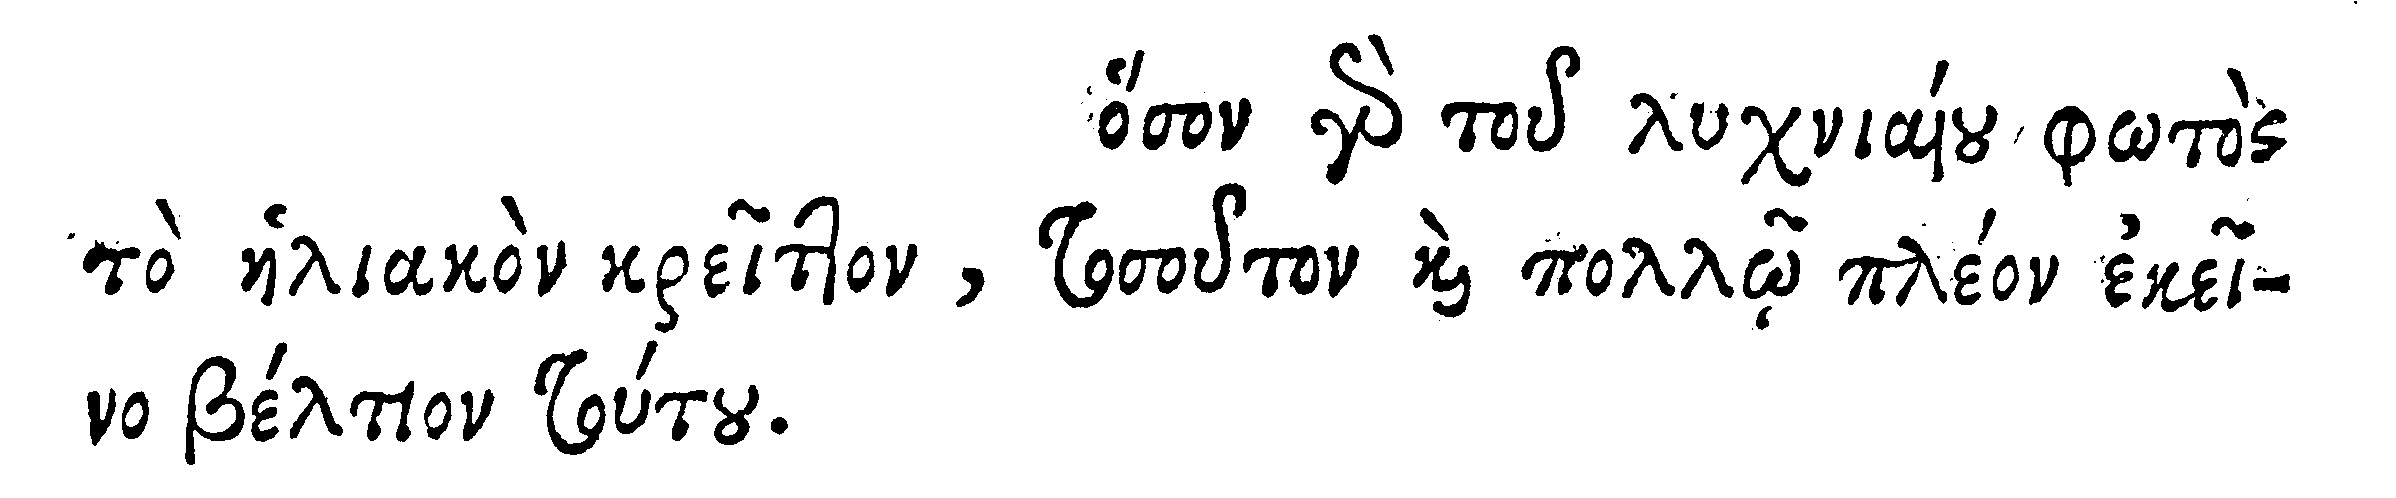 ὅσον γὰρ τοῦ λυχνιαίου φωτὸς
τὸ ἡλιακὸν κρεῖττον, τοσοῦτον καὶ πολλῷ πλέον ἐκεῖ-
νο βέλτιον τούτου.